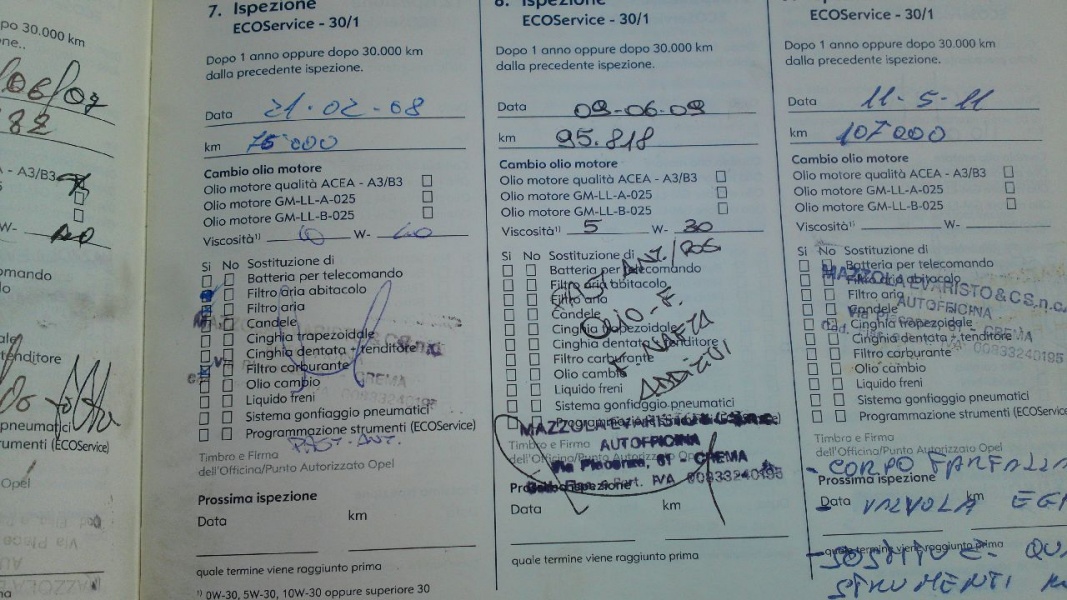 po 30.000 km
ne..
06/07
- A3/B3
W-
omando
lo
ale
tenditore
pneumatici
rumenti (ECOService)
Opel
7. Ispezione
ECOService - 30/1
Dopo 1 anno oppure dopo 30.000 km
dalla precedente ispezione.
Data 21-02-08
km 75000
Cambio olio motore
Olio motore qualità ACEA - A3/B3
Olio motore GM-LL-A-025
Olio motore GM-LL-B-025
Viscosità¹⁾ 10 W- 40
Si No Sostituzione di
Batteria per telecomando
Filtro aria abitacolo
Filtro aria
Candele
Cinghia trapezoidale
Cinghia dentata + tenditore
Filtro carburante
Olio cambio
Liquido freni
Sistema gonfiaggio pneumatici
Programmazione strumenti (ECOService)
PAST. ANT.
Timbro e Firma
dell'Officina/Punto Autorizzato Opel
Prossima ispezione
Data km
quale termine viene raggiunto prima
¹⁾ 0W-30, 5W-30, 10W-30 oppure superiore 30
8. Ispezione
ECOService - 30/1
Dopo 1 anno oppure dopo 30.000 km
dalla precedente ispezione.
Data 09-06-09
km 95.818
Cambio olio motore
Olio motore qualità ACEA - A3/B3
Olio motore GM-LL-A-025
Olio motore GM-LL-B-025
Viscosità¹⁾ 5 W- 30
Si No Sostituzione di
Batteria per telecomando
Filtro aria abitacolo
Filtro aria
Candele
Cinghia trapezoidale
Cinghia dentata + tenditore
Filtro carburante
Olio cambio
Liquido freni
Sistema gonfiaggio pneumatici
ANT./POS
OLIO - F.
ADDITIVI
MAZZOLA EVARISTO & C S.n.c.
AUTOFFICINA
Via Piacenza, 61 - CREMA
Part. IVA 00833240195
Timbro e Firma
dell'Officina/Punto Autorizzato Opel
Prossima ispezione
Data km
quale termine viene raggiunto prima
ECOService - 30/1
Dopo 1 anno oppure dopo 30.000 km
dalla precedente ispezione.
Data 11-5-11
km 107000
Cambio olio motore
Olio motore qualità ACEA - A3/B3
Olio motore GM-LL-A-025
Olio motore GM-LL-B-025
Viscosità¹⁾ W-
Si No Sostituzione di
Batteria per telecomando
Filtro aria abitacolo
Filtro aria
Candele
Cinghia trapezoidale
Cinghia dentata + tenditore
Filtro carburante
Olio cambio
Liquido freni
Sistema gonfiaggio pneumatici
Programmazione strumenti (ECOService
MAZZOLA EVARISTO & C S.n.c.
AUTOFFICINA
CREMA
00833240195
Timbro e Firma
dell'Officina/Punto Autorizzato Opel
- CORPO FARFALLA
Prossima ispezione
Data km
VALVOLA EG
quale termine viene raggiunto prima
STRUMENTI